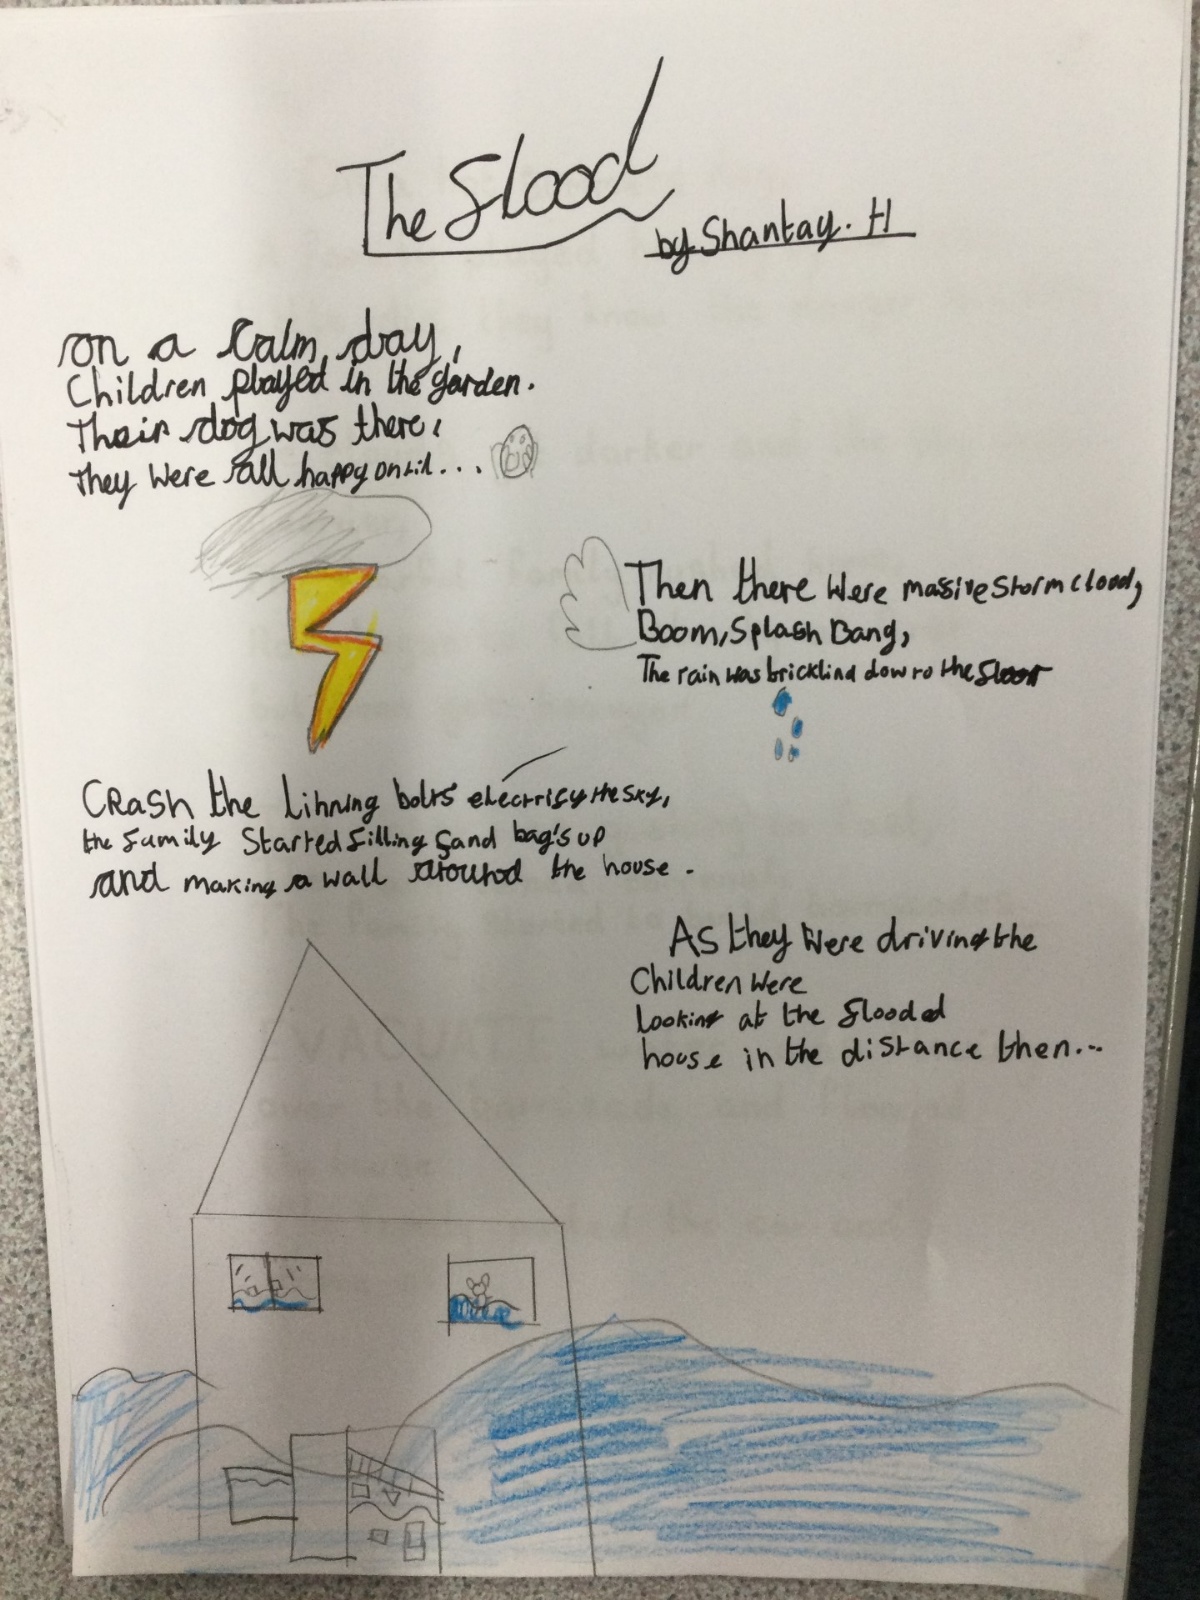 The flood
by Shantay. H
on a Calm day,
Children played in the garden.
Their dog was there,
They were all happy ontil...
Then there were massive storm cloud,
Boom, Splash Bang,
The rain was bricklind down to the floor
CRash the Lihning bolts electrisy the sky,
the family started filling sand bag's up
and making a wall around the house.
As they were driving the
Children were
Looking at the flooded
house in the distance then...